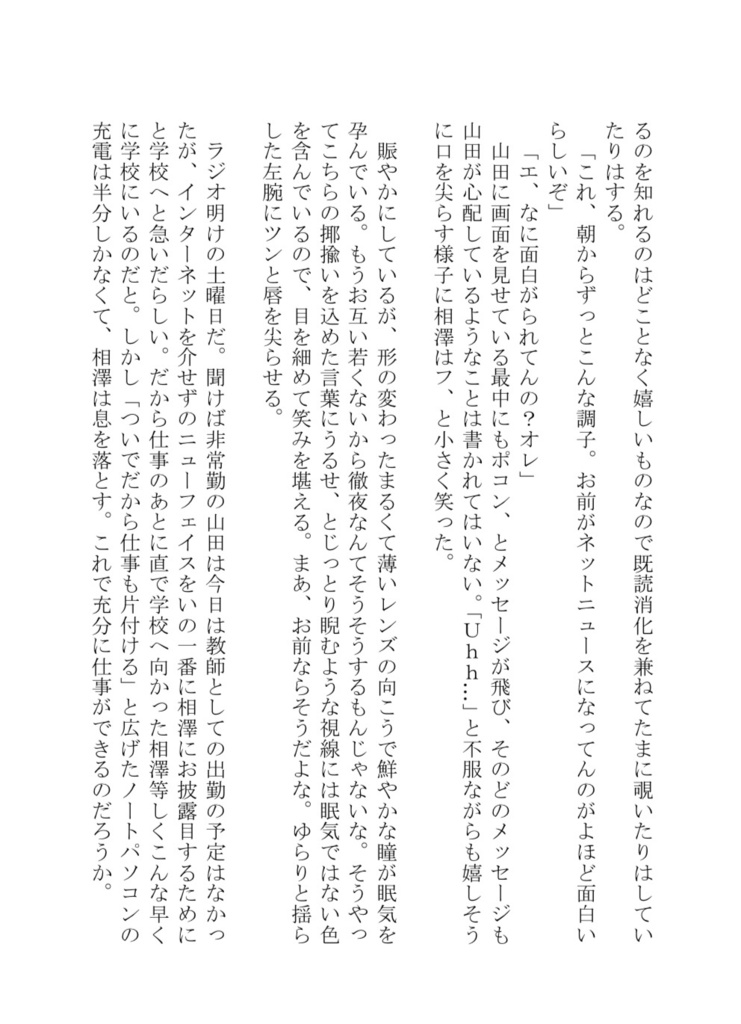 るのを知れるのはどことなく嬉しいものなので既読消化を兼ねてたまに覗いたりはしてい
たりはする。
「これ、朝からずっとこんな調子。お前がネットニュースになってんのがよほど面白い
らしいぞ」
「エ、なに面白がられてんの？オレ」
山田に画面を見せている最中にもポコン、とメッセージが飛び、そのどのメッセージも
山田が心配しているようなことは書かれてはいない。「Uhh…」と不服ながらも嬉しそう
に口を尖らす様子に相澤はフ、と小さく笑った。
賑やかにしているが、形の変わったまるくて薄いレンズの向こうで鮮やかな瞳が眠気を
孕んでいる。もうお互い若くないから徹夜なんてそうそうするもんじゃないな。そうやっ
てこちらの揶揄いを込めた言葉にうるせ、とじっとり睨むような視線には眠気ではない色
を含んでいるので、目を細めて笑みを堪える。まあ、お前ならそうだよな。ゆらりと揺ら
した左腕にツンと唇を尖らせる。
ラジオ明けの土曜日だ。聞けば非常勤の山田は今日は教師としての出勤の予定はなかっ
たが、インターネットを介せずのニューフェイスをいの一番に相澤にお披露目するために
と学校へと急いだらしい。だから仕事のあとに直で学校へ向かった相澤等しくこんな早く
に学校にいるのだと。しかし「ついでだから仕事も片付ける」と広げたノートパソコンの
充電は半分しかなくて、相澤は息を落とす。これで充分に仕事ができるのだろうか。